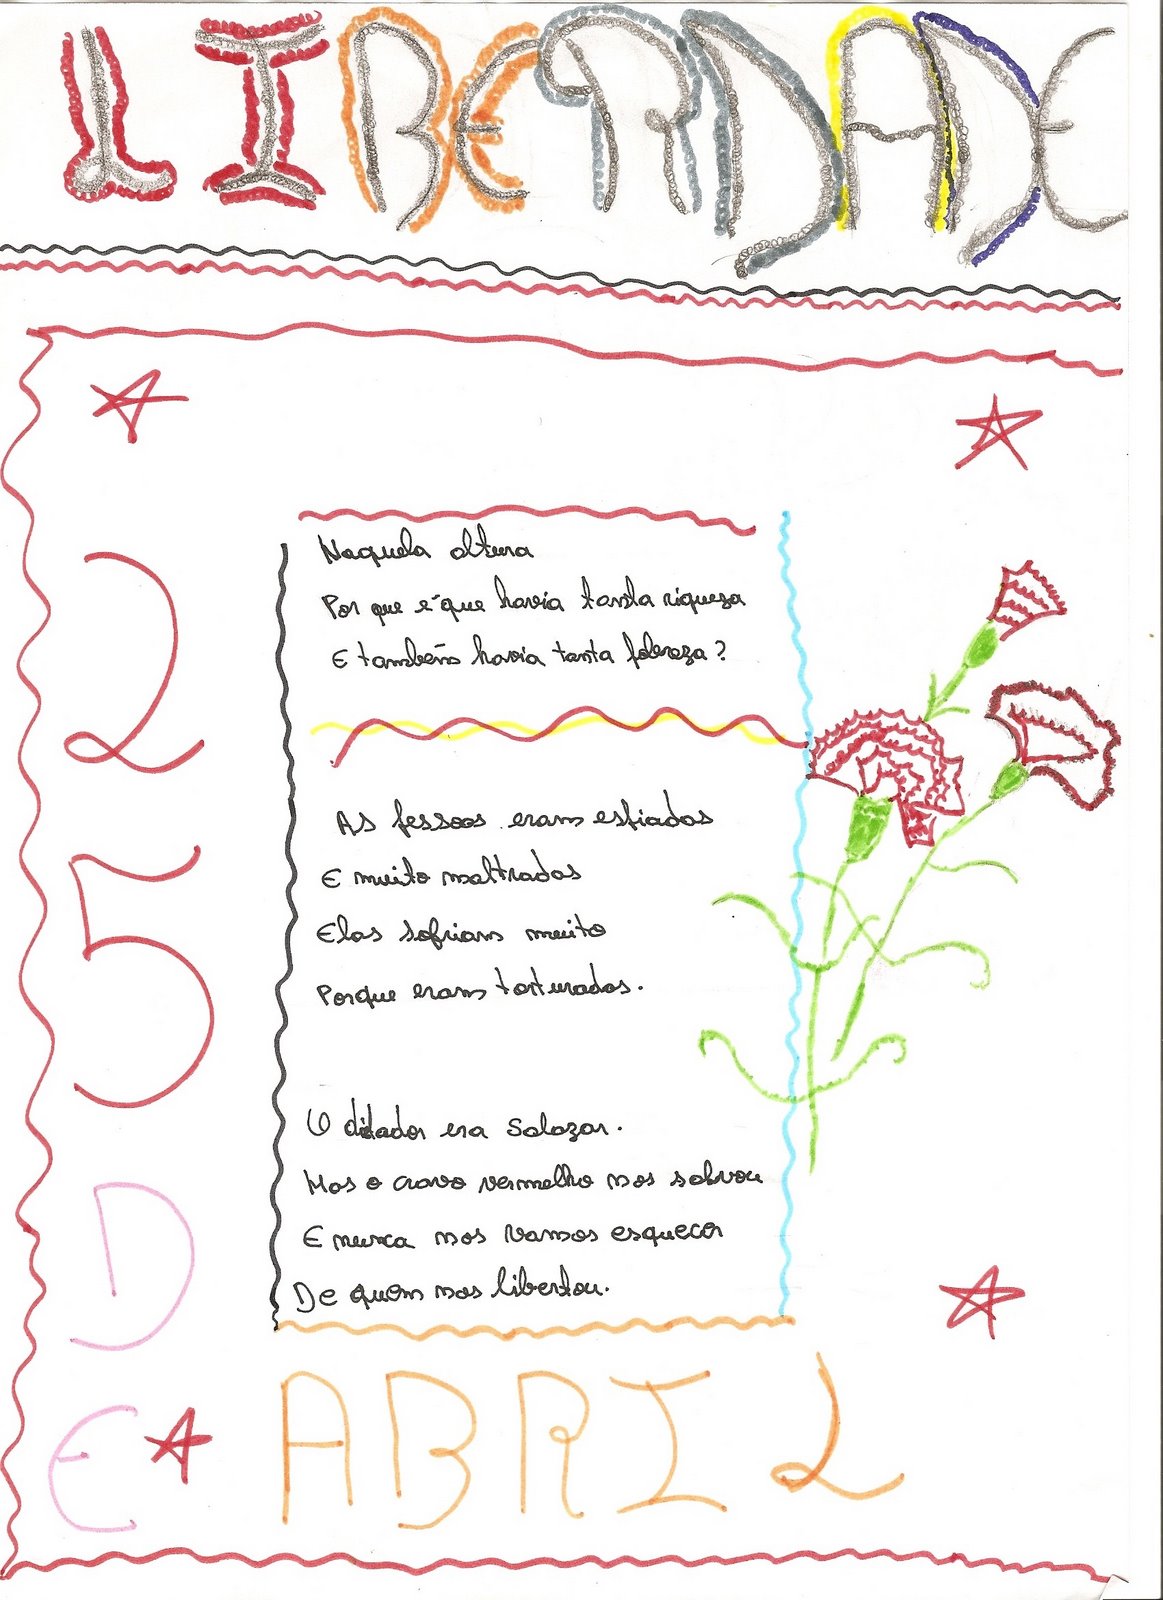 LIBERDADE
Naquela altura
Por que é que havia tanta riqueza
E também havia tanta pobreza?
As pessoas eram espiadas
E muito maltradas
Elas sofriam muito
Porque eram torturadas.
O ditador era Salazar.
Mas o cravo vermelho nos salvou
E nunca nos vamos esquecer
De quem nos libertou.
25
DE
ABRIL